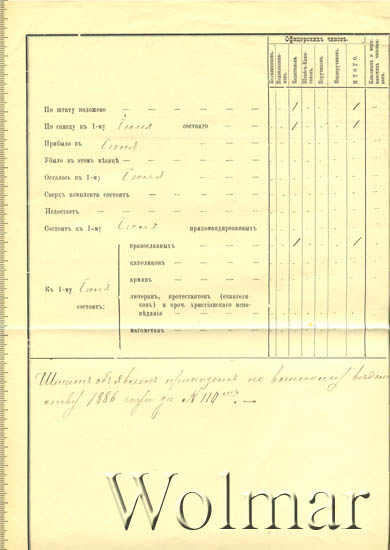 Офицерскихъ чиновъ.
Полковниковъ.
Подполковни-
ковъ.
Капитановъ.
Штабсъ-Капи-
тановъ.
Поручиковъ.
Подпоручиковъ.
ИТОГО.
По штату положено — — — — — — — 1 1
По списку къ 1-му Іюля состояло — — — 1 1
Прибыло въ Іюня
Убыло въ этомъ мѣсяцѣ — — — — — — —
Осталось къ 1-му Іюля
Сверхъ комплекта состоитъ — — — — — —
Недостаетъ — — — — — — — —
Состоитъ къ 1-му Іюля прикомандированныхъ
православныхъ — — — 1 1
католиковъ — — — —
армянъ — — — —
Къ 1-му Іюля
состоитъ:
лютеранъ, протестантовъ (евангели-
ковъ) и проч. христіанскаго испо-
вѣданія — — — —
магометанъ — — — —
Штатъ объявленъ приказомъ по военному вѣдом
ству 1886 года за №110
Wolmar